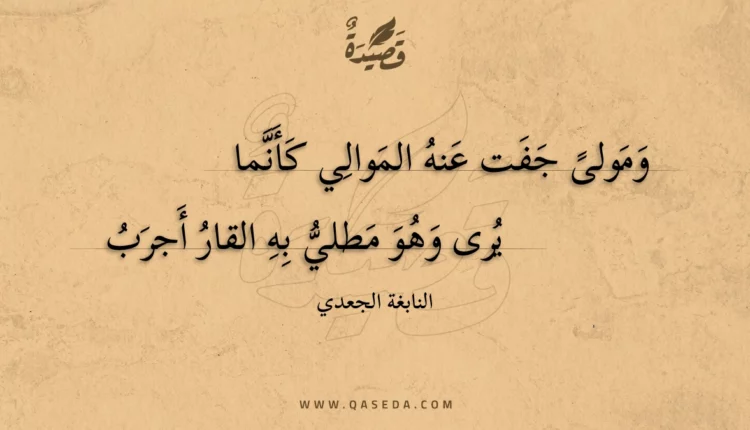 قَصِيدَةٌ
وَمَولىً جَفَت عَنهُ المَوالِي كَأَنَّما
يُرى وَهُوَ مَطلِيُّ بِهِ القارُ أَجرَبُ
النابغة الجعدي
WWW.QASEDA.COM